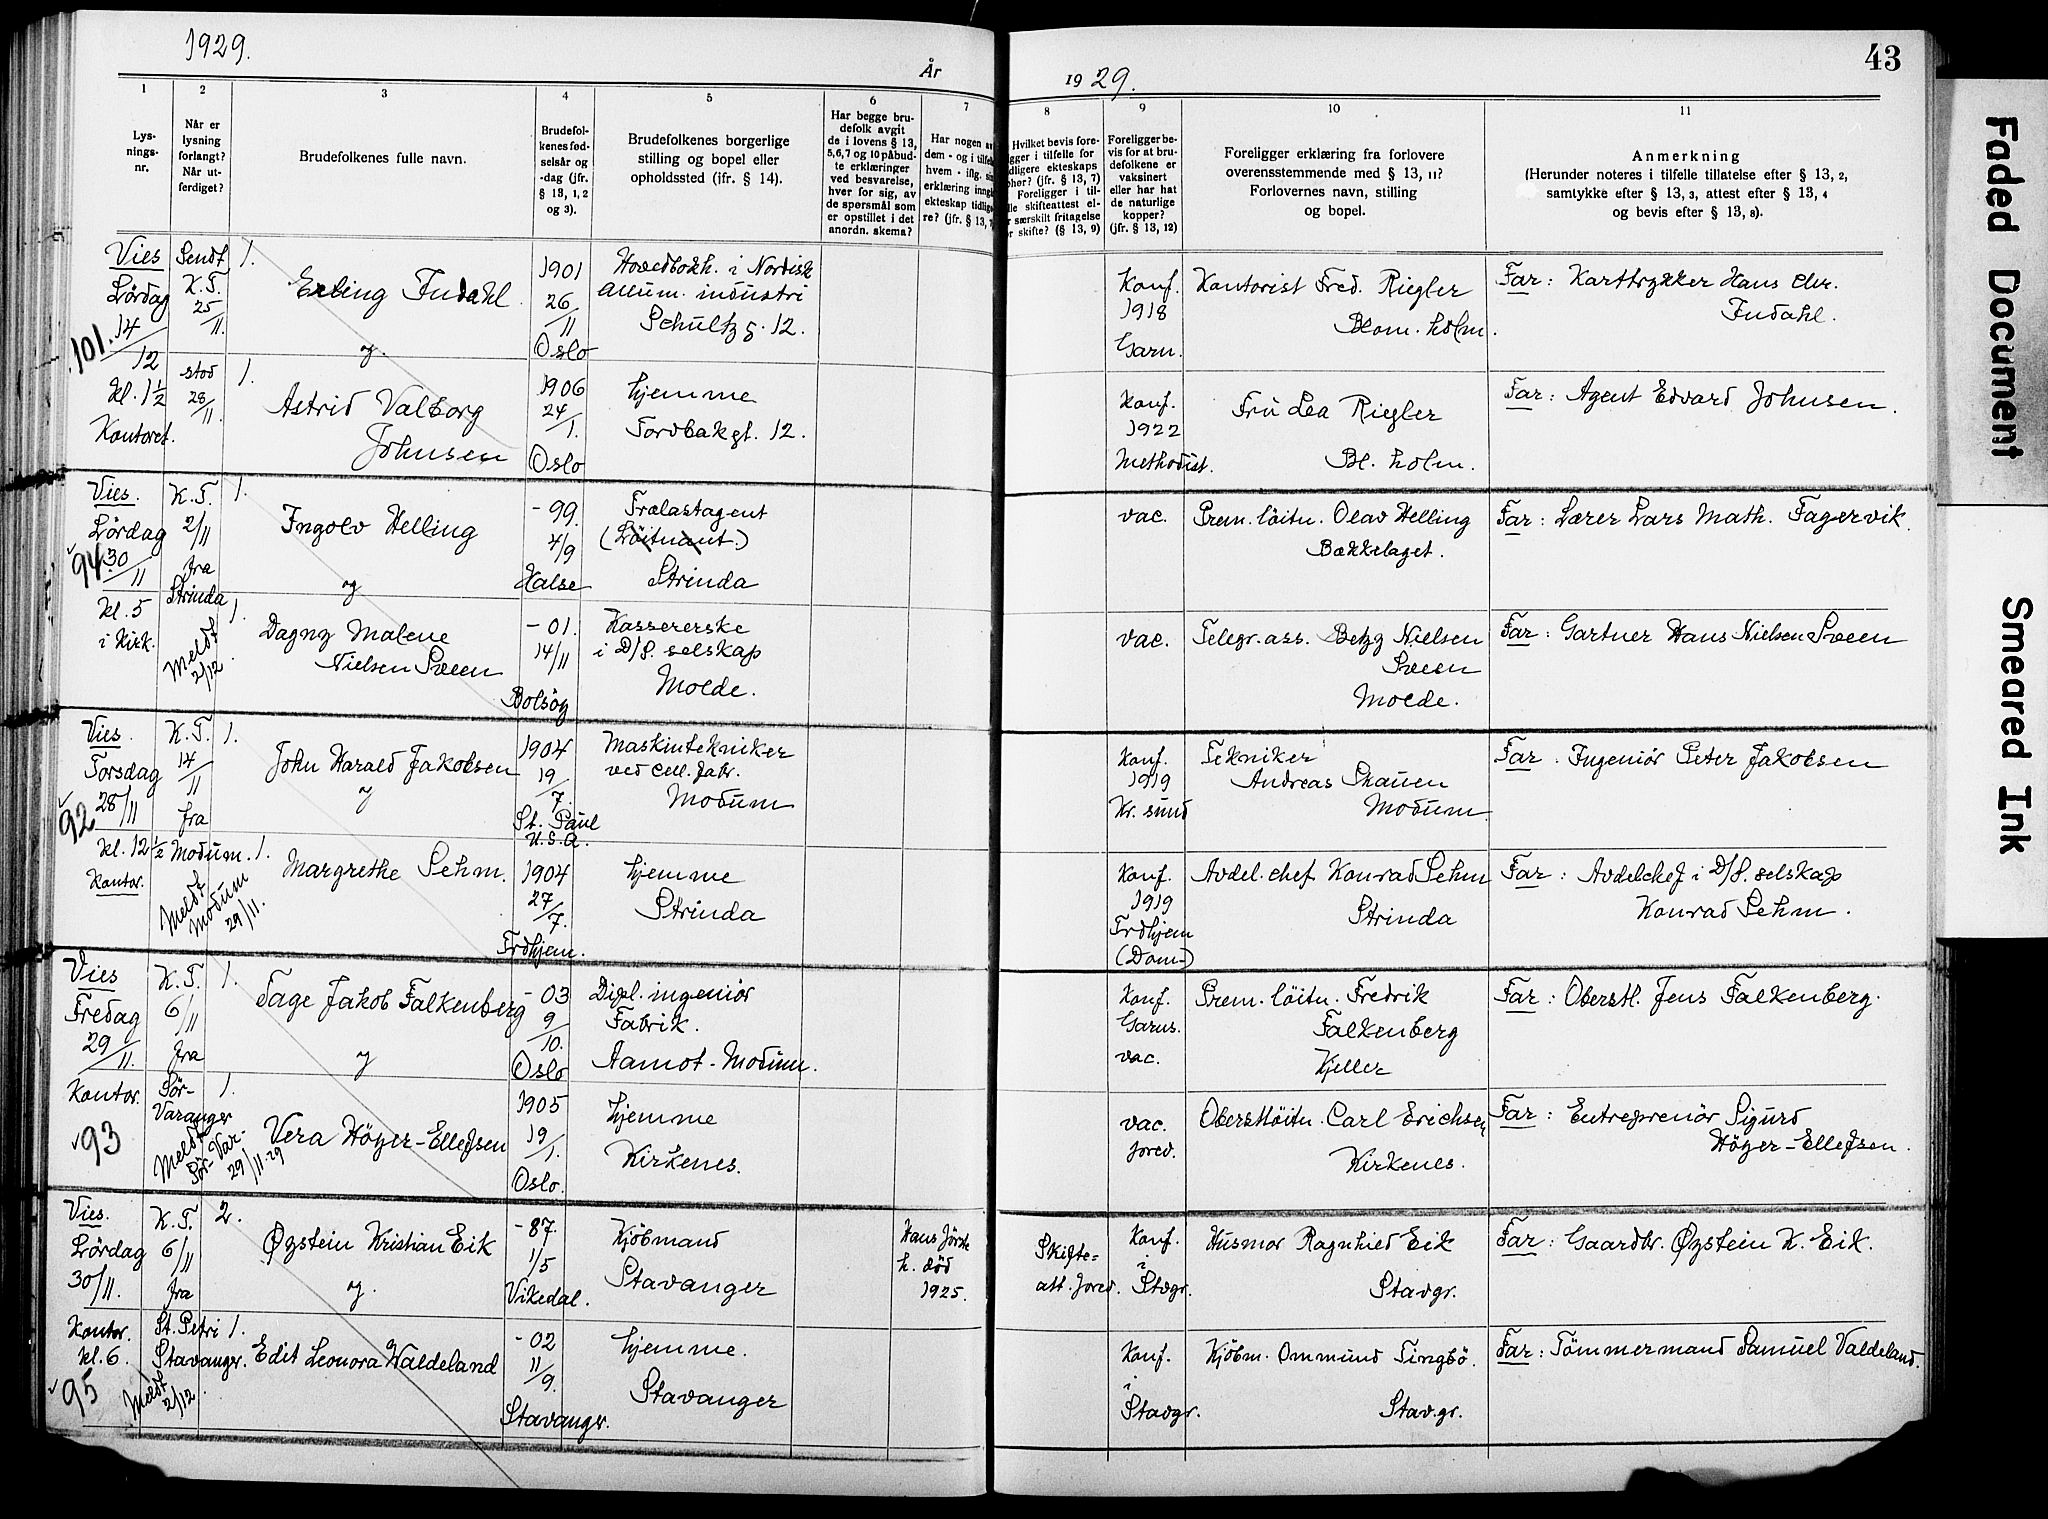 1929.
År
1929.
43
1
Lys-
nings-
nr.
2
Når er
lysning
forlangt?
Når ut-
ferdiget?
3
Brudefolkenes fulle navn.
4
Brudefol-
kenes fød-
selsår og
-dag (jfr.
§ 13, 1, 2
og 3).
5
Brudefolkenes borgerlige
stilling og bopel eller
opholdssted (ifr. § 14).
6
Har begge bru-
defolk avgit
de i lovens § 13,
5,6,7 og 10 påbud-
te erklæringer
ved besvarelse,
hver for sig, av
de spørsmål som
er opstillet i det
anordn. skema?
7
Har nogen a
dem - og i tilfe
hvem - iflg. si
erklæring inng
ekteskap tidlig
re? (jfr. § 13,
8
Hvilket bevis fore-
gger i tilfelle for
dligere ekteskaps
phør? (jfr. § 13, 7)
Foreligger i til-
lle skifteattest el-
r særskilt fritagelse
or skifte? (§ 13, 9)
9
Foreligger be-
vis for at bru-
defolkene er
vaksinert
eller har hat
de naturlige
kopper?
(jfr. § 13, 12)
10
Foreligger erklæring fra forlovere
overensstemmende med § 13, 11?
Forlovernes navn, stilling
og bopel.
11
Anmerkning
(Herunder noteres i tilfelle tillatelse efter § 13, 2,
samtykke efter § 13, 3, attest efter § 13, 4
og bevis efter § 13, 8).
Vies
Lördag
14/12
101.
kl. 1½
Kontoret.
Sendt
K.T.
25/11.
stod
28/11.
1.
Erling Indahl
og.
1901
26/11
Oslo
Hovedbokh. i Nordisk
Allum. industri
Schultz g. 12.
Konf.
1918
Garn.
Kontorist Fred. Riegler
Blom.holm.
Far: Karttrykker Hans Chr.
Indahl.
1.
Astrid Valborg
Johnsen
1906
24/1.
Oslo
hjemme
Tordbakgt. 12.
Konf.
1922
Methodist.
Fru Lea Riegler
Bl. holm.
Far: Agent Edvard Johnsen.
Vies.
Lördag
30/11
94
kl. 5
i Kirk.
K.T.
2/11
fra
Strinda
Meldt
2/12.
1.
Ingolv Helling
og
-99.
4/9
Halse
Trælastagent
(Löitnant.)
Strinda
vac.
Prem. löitn. Olav Helling
Bækkelaget.
Far: Lærer Lars Math. Fagervik.
1.
Dagny Malene
Nielsen Sveen
-01.
14/11
Bolsöy
Kassererske
i D/S. selskap
Molde.
vac.
Telegr.ass. Betzy Nielsen
Sveen
Molde.
Far: Gartner Hans Nielsen Sveen
Vies.
Torsdag
28/11
92
kl. 12½
Kontor.
K.T.
14/11
fra
Modum.
Meldt
Modum
29/11.
1.
John Harald Jakobsen
og
1904
19/7.
St. Paul
U.S.A.
Maskintekniker
ved Cell. fabr.
Modum
Konf.
1919
Kr. sund
Tekniker
Andreas Skauen
Modum
Far: Ingeniör Peter Jakobsen
1.
Margrethe Sehm.
1904
27/7.
Trdhjem.
hjemme
Strinda
Konf.
1919
Trdhjem
(Dom-)
Avdel.chef Konrad Sehm
Strinda
Far: Avdelchef i D/S. selskap
Konrad Sehm.
Vies
Fredag
29/11.
Kontor.
93
K.T.
6/11
fra
Sör-
Varanger
Meldt
Sör-Var-
29/11-29
1.
Tage Jakob Falkenberg
og
-03
9/10.
Oslo
Dipl. ingeniör
Fabrik.
Aamot - Modum.
Konf.
Garns.
vac.
Prem. löitn. Fredrik
Falkenberg
Kjeller
Far: Oberstl. Jens Falkenberg.
1.
Vera Höyer-Ellefsen
1905
19/1.
Oslo.
hjemme
Kirkenes.
vac.
forev.
Oberstlöitn. Carl Erichsen
Kirkenes.
Far: Entreprenör Sigurd
Höyer-Ellefsen.
Vies.
Lördag
30/11.
Kontor.
kl. 6.
95
K.T.
6/11
fra
St. Petri
Stavanger.
Meldt
2/12.
2.
Øystein Kristian Eik
og.
-87.
1/5
Vikedal.
Kjöbmand
Stavanger
Hans förste
h. död
1925.
Skifte-
att. forev.
Konf.
i
Stvgr.
Husmor Ragnhild Eik
Stavgr.
Far: Gaardbr. Øystein K. Eik.
1.
Edit Leonora Waldeland
-02
11/9.
Stavanger.
hjemme.
Stavanger
Konf.
i
Stavgr.
Kjöbm. Ommund Tingbö.
Stav.gr.
Far: Tömmermand Samuel Valdeland.
Faded Document
Smeared Ink